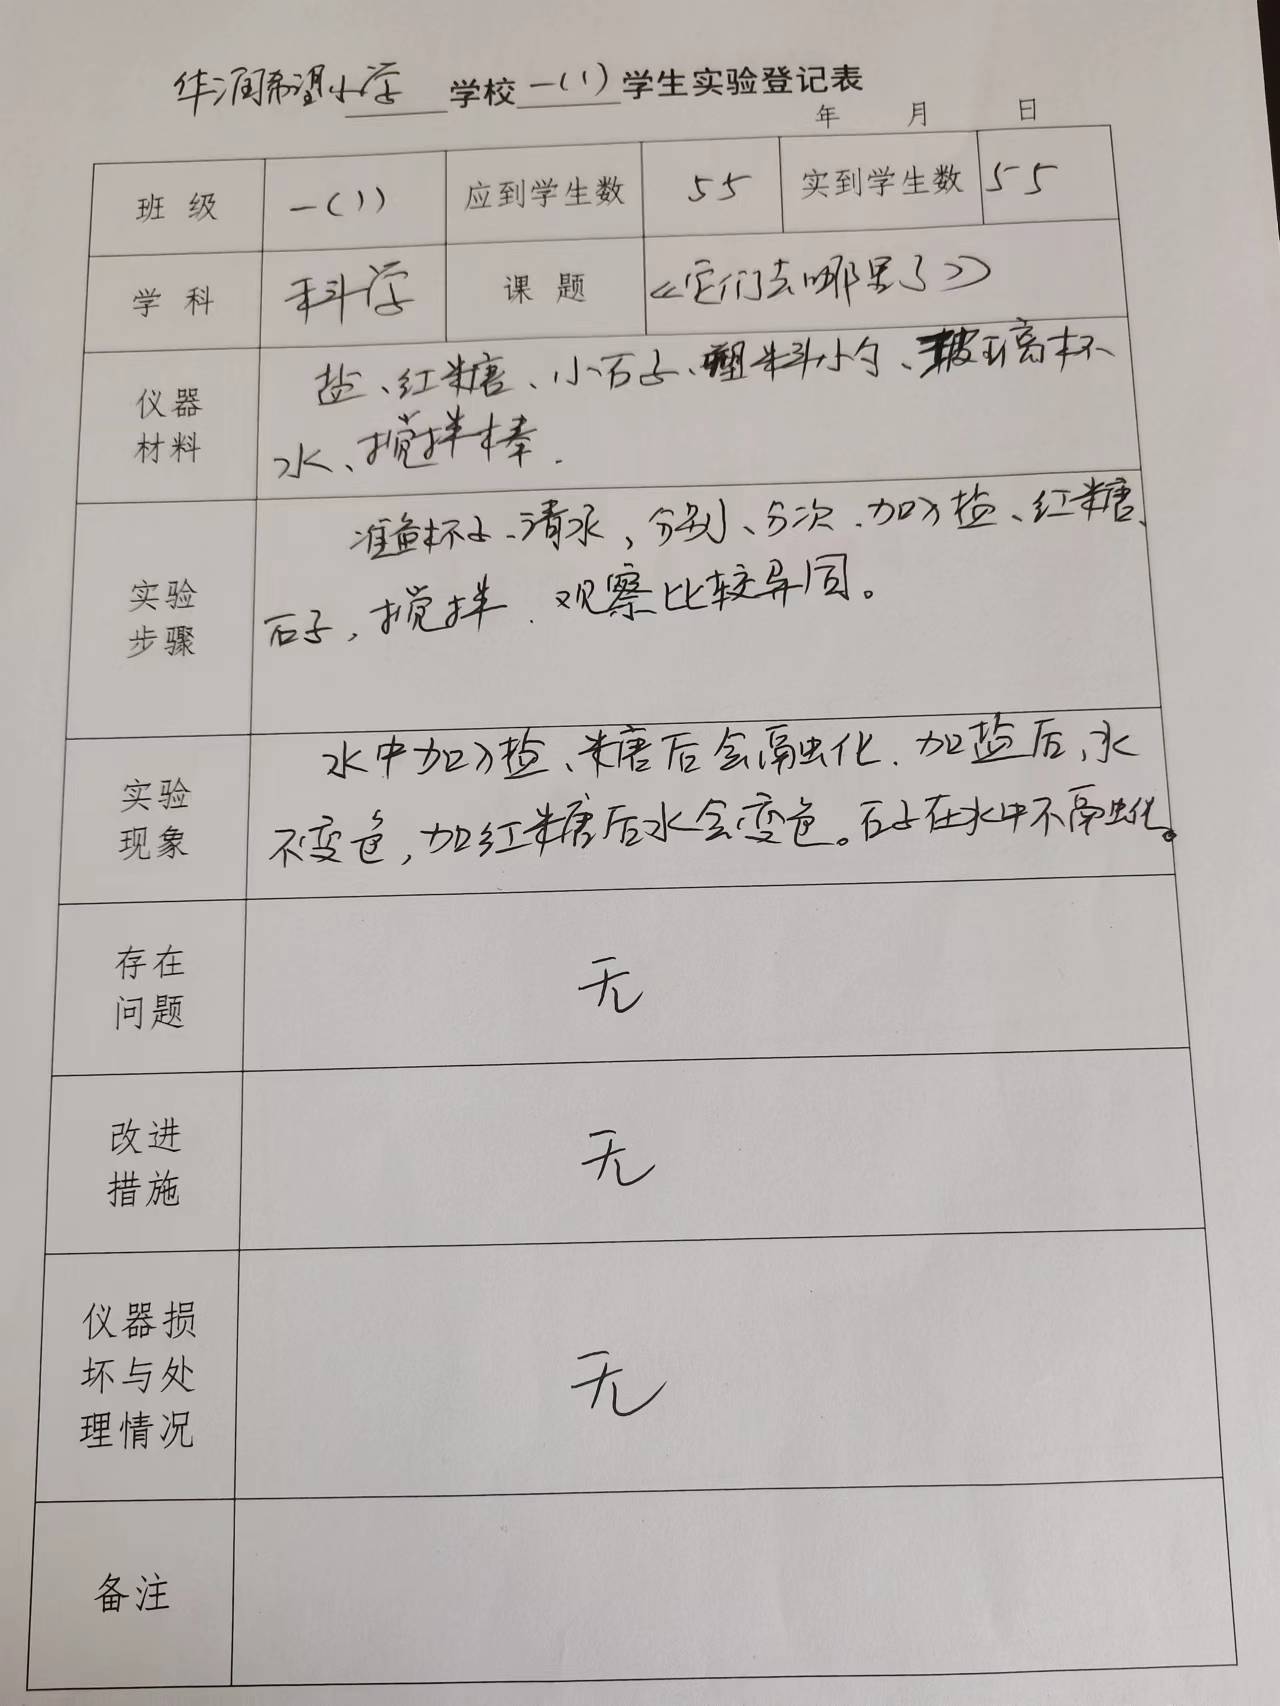 华润希望小学 学校 一(1) 学生实验登记表
年 月 日
班 级 一(1) 应到学生数 55 实到学生数 55
学 科 科学 课 题 《它们去哪里了》
仪器
材料
盐、红糖、小石子、塑料小勺、玻璃杯
水、搅拌棒.
实验
步骤
准备杯子、清水，分别、分次、加入盐、红糖、
石子，搅拌.观察比较异同。
实验
现象
水中加入盐、糖后会融化.加盐后,水
不变色,加红糖后水会变色。石子在水中不融化。
存在
问题
无
改进
措施
无
仪器损
坏与处
理情况
无
备注